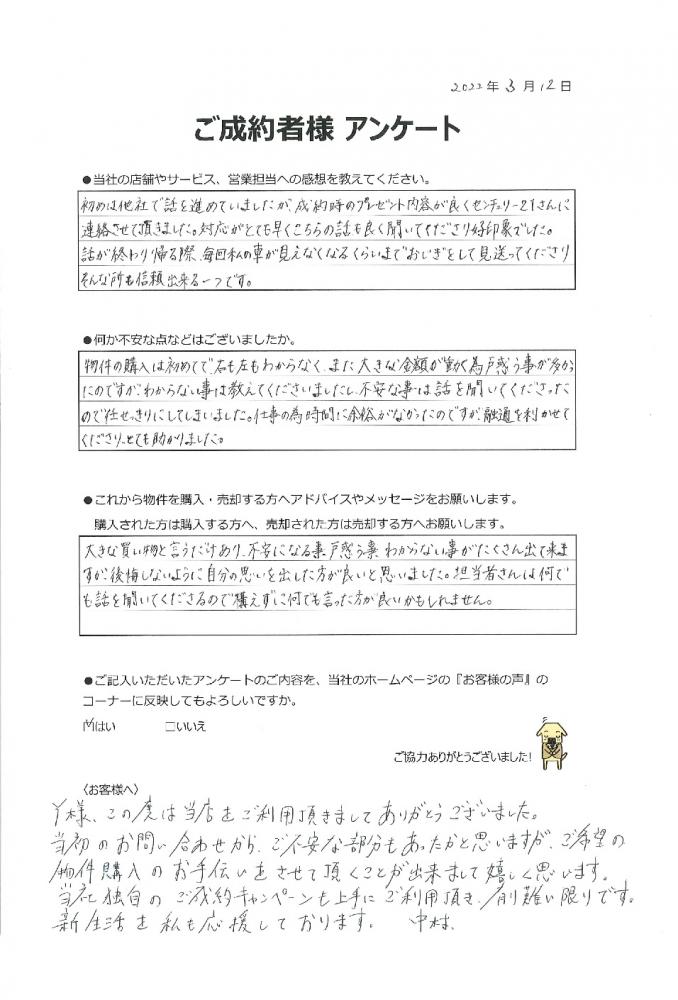 2022年 3月 12日
ご成約者様 アンケート
●当社の店舗やサービス、営業担当への感想を教えてください。
初めは他社で話を進めていましたが、成約時のプレゼント内容が良くセンチュリー21さんに
連絡させて頂きました。対応がとても早くこちらの話も良く聞いてくださり好印象でした。
話が終わり帰る際、毎回私の車が見えなくなるくらいまでおじぎをして見送ってくださり
そんな所も信頼出来る一つです。
●何か不安な点などはございましたか。
物件の購入は初めてで、右も左もわからなく、また大きな金額が動く為戸惑う事が多かっ
たのですが、わからない事は教えてくださいましたし、不安な事は話を聞いてくださった
ので任せっきりにしてしまいました。仕事の為時間に余裕がなかったのですが、融通を利かせて
くださり、とても助かりました。
●これから物件を購入・売却する方へアドバイスやメッセージをお願いします。
購入された方は購入する方へ、売却された方は売却する方へお願いします。
大きな買い物と言うだけあり、不安になる事、戸惑う事、わからない事がたくさん出て来ま
すが、後悔しないように自分の思いを出した方が良いと思いました。担当者さんは何で
も話を聞いてくださるので構えずに何でも言った方が良いかもしれません。
●ご記入いただいたアンケートのご内容を、当社のホームページの『お客様の声』の
コーナーに反映してもよろしいですか。
☑はい □いいえ
ご協力ありがとうございました!
〈お客様へ〉
Y様、この度は当店をご利用頂きましてありがとうございました。
当初のお問い合わせから、ご不安な部分もあったかと思いますが、ご希望の
物件購入のお手伝いをさせて頂くことが出来まして嬉しく思います。
当社独自のご成約キャンペーンも上手にご利用頂き、有り難い限りです。
新生活を私も応援しております。 中村.